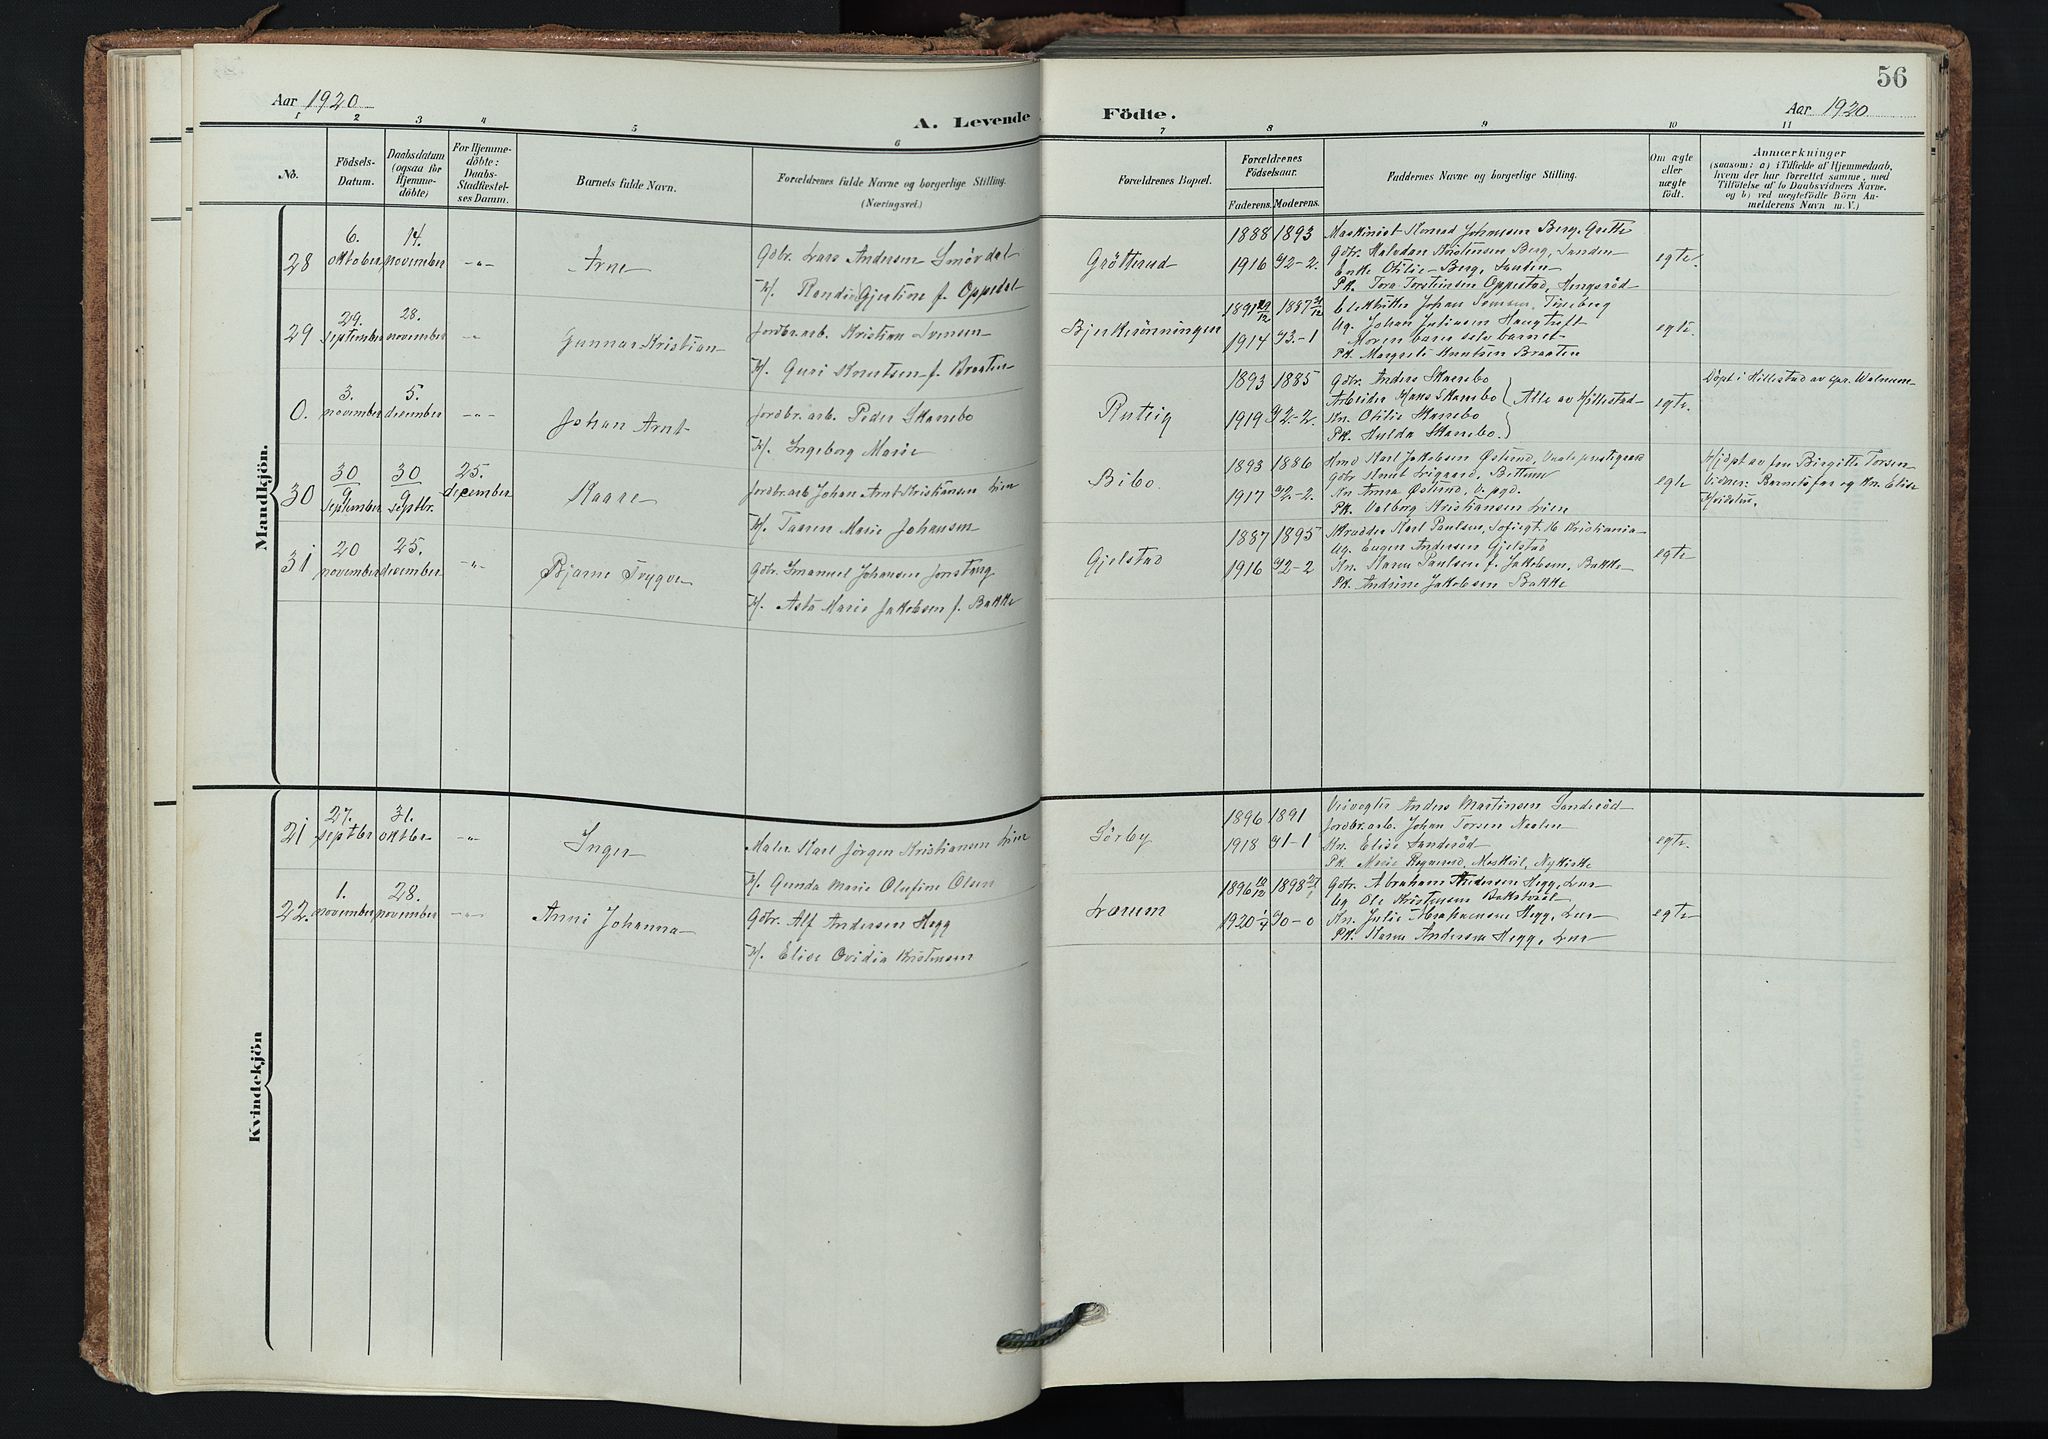 56
Aar 1920
A. Levende Födte.
Aar 1920
1 2 3 4 5 6 7 8 9 10 11
No.
Födsels-
Datum.
Daabsdatum
(ogsaa for
Hjemme-
döbte)
For Hjemme-
döbte:
Daabs-
Stadfæstel-
ses Datum.
Barnets fulde Navn.
Forældrenes fulde Navne og borgerlige Stilling.
(Næringsvei.)
Forældrenes Bopæl.
Forældrenes
Födselsaar.
Faderens. Moderens.
Faddernes Navne og borgerlige Stilling.
Om ægte
eller
uægte
födt.
Anmærkninger
(saasom: a) i Tilfælde af Hjemmedaab,
hvem der har forrettet samme, med
Tilföielse af to Daabsvidners Navne,
og b) ved uægtefödte Börn An-
melderens Navn m. V.)
Mandkjön.
28
6.
oktober
14.
november
-"-
Arne
Gbr. Lars Andersen Smördal
H/. Randi Gjertine f. Oppedal
Grötterud
1888 1893
1916 G2-2.
Maskinist Konrad Johansen Berg, Grette
Gbr. Halvdan Kristensen Berg, Sanden
Enke Otilie Berg, Sanden
Pk. Tora Torstensen Oppestad, Hengsröd
egte.
29
29.
september
28.
november
-"-
Gunnar Kristian
Jordbr.arb. Kristian Svensen
H/. Guri Knutsen f. Braaten
Bjerkerönningen
1891 29/12 1887 31/12
1914 G3-1
Johan Svensen
Ug. Johan Juliussen Haugtuft
Moren barer selv barnet
Pk. Margrete Knutsen Braaten
egte.
0.
3.
november
5.
december
-"-
Johan Arnt
Jordbr.arb. Peder Skarrebo
H/. Ingeborg Marie
Rutsig
1893 1885
1919 G2-2.
Gbr. Anders Skarrebo
Arbeider Hans Skarrebo
Kn. Otilie Skarrebo
Pk. Hulda Skarrebo.
Alle av Hillestad
egte.
Döpt i Hillestad av spr. Walnum
30
30/9
september
30/9
septbr.
25.
december
Kaare
Jordbr.arb Johan Arnt Kristiansen Lien
H/. Taaren Marie Johansen
Bibo.
1893 1886
1917 G2-2.
Karl Jakobsen Östlund, Vaale prestegaard
Kn. Anna Östlund, V. pgd.
Pk. Valborg Kristiansen Lien
egte
Hjdpt av fru Birgitte Torsen
Vidner: Barnets far og Kn. Elise
31
20
november
25.
december
-"-
Bjarne Trygve
Gbr. Emanuel Johansen
H/. Asta Marie Jakobsen f. Bakke
Gjelstad
1887 1895
1916 G2-2
Skrædder Karl Paulsen, Kristiania
Ug. Eugen Andersen Gjelstad
Kn. Karen Paulsen f. Jakobsen, Bakke
Pk. Andrine Jakobsen Bakke
egte
Kvindekjön
21
27.
septbr
31.
oktbr.
-"-
Inger
Maler Karl Jörgen Kristiansen Lien
H/. Gunda Marie Olufine Olsen
Sörby
1896 1891
1918 G1-1
Veivogter Anders Martinsen Sanderöd
Jordbr.arb. Johan Torsen
Kn. Elise Sanderöd
Pk. Marie Nykirke
egte.
22.
1.
november
28.
november
-"-
Anni Johanna
Gbr. Alf Andersen Hegg
H/. Elise Ovidia Kristensen
Lærum
1896 19/12 1898
1920 1/4 G0-0
Gbr. Abraham Andersen Hegg, Lur
Ug Ole Kristensen
Kn. Julie Abrahamsen Hegg, Lur
Pk. Karen Andersen Hegg, Lur
egte